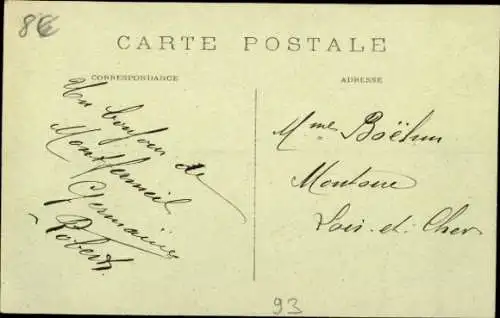 8€
CARTE POSTALE
CORRESPONDANCE
ADRESSE
Un bonjour de
Montfermeil
Germaine
Robert
Mmes Boëhm
Montoire
Loir-et-Cher
93